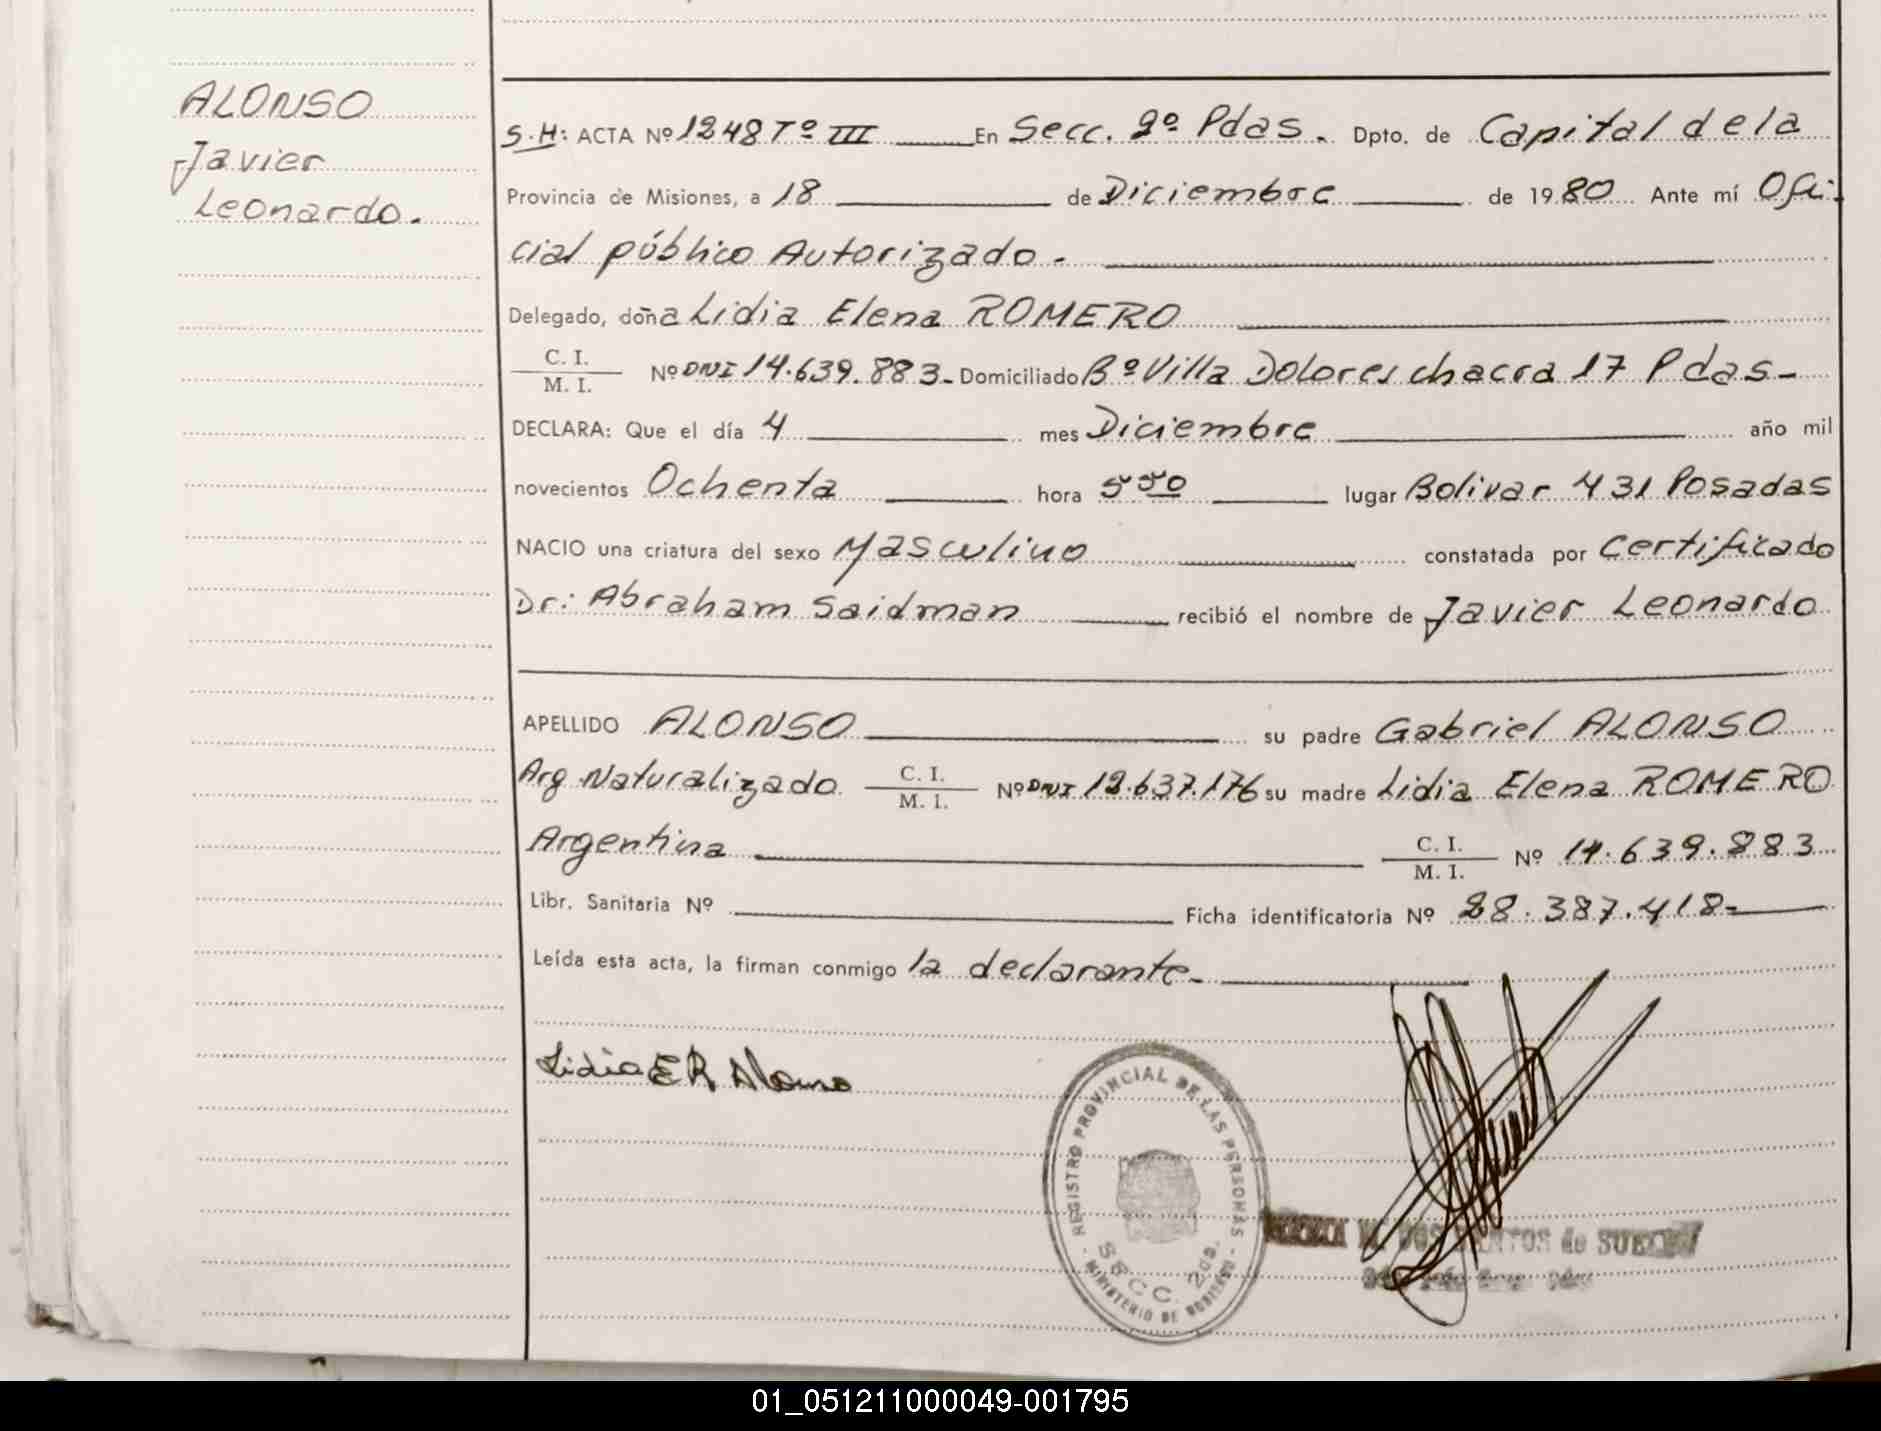 ALONSO
Javier
Leonardo.
S.H: ACTA Nº 1248 Tº III En Secc. 2º Pdas. Dpto. de Capital de la
Provincia de Misiones, a 18 de Diciembre de 1980 Ante mí Ofi-
cial público Autorizado.
Delegado, doña Lidia Elena ROMERO
C. I.
M. I. Nº DNI 14.639.883- Domiciliado Bº Villa Dolores chacra 17 Pdas-
DECLARA: Que el día 4 mes Diciembre año mil
novecientos Ochenta hora 5 50 lugar Bolivar 431 Posadas
NACIO una criatura del sexo Masculino constatada por Certificado
Dr: Abraham Saidman recibió el nombre de Javier Leonardo
APELLIDO ALONSO su padre Gabriel ALONSO
Arg. Naturalizado C. I. M. I. Nº DNI 12.637.176 su madre Lidia Elena ROMERO
Argentina C. I. M. I. Nº 14.639.883
Libr. Sanitaria Nº Ficha identificatoria Nº 28.387.418-
Leída esta acta, la firman conmigo la declarante-
Lidia E R Alonso
REGISTRO PROVINCIAL DE LAS PERSONAS
SECC. 2da.
MINISTERIO DE GOBIERNO
01_051211000049-001795